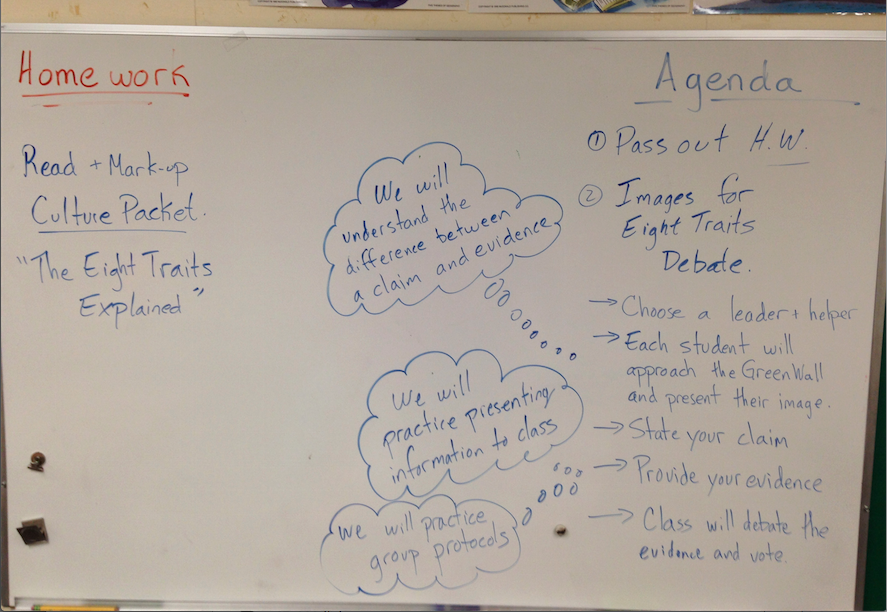 Home work
Read + Mark-up
Culture Packet.
"The Eight Traits
Explained"
We will
understand the
difference between
a claim and evidence
We will
practice presenting
information to class
we will practice
group protocols
Agenda
① Pass out H.W.
② Images for
Eight Traits
Debate.
→ Choose a leader + helper
→ Each student will
approach the Green Wall
and present their image.
→ State your claim
→ Provide your evidence
→ Class will debate the
evidence and vote.